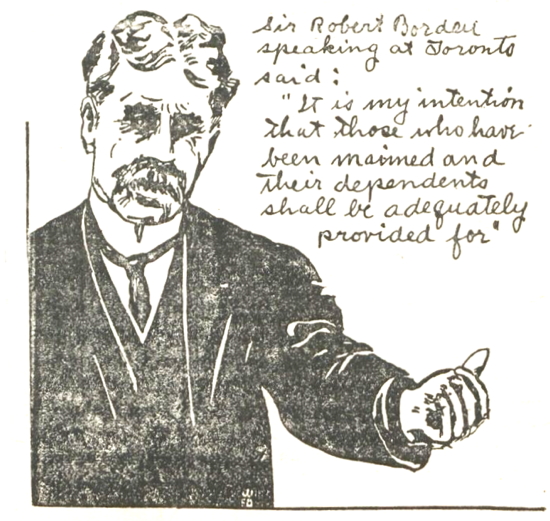 Sir Robert Borden
speaking at Toronto
said:
"It is my intention
that those who have
been maimed and
their dependents
shall be adequately
provided for"